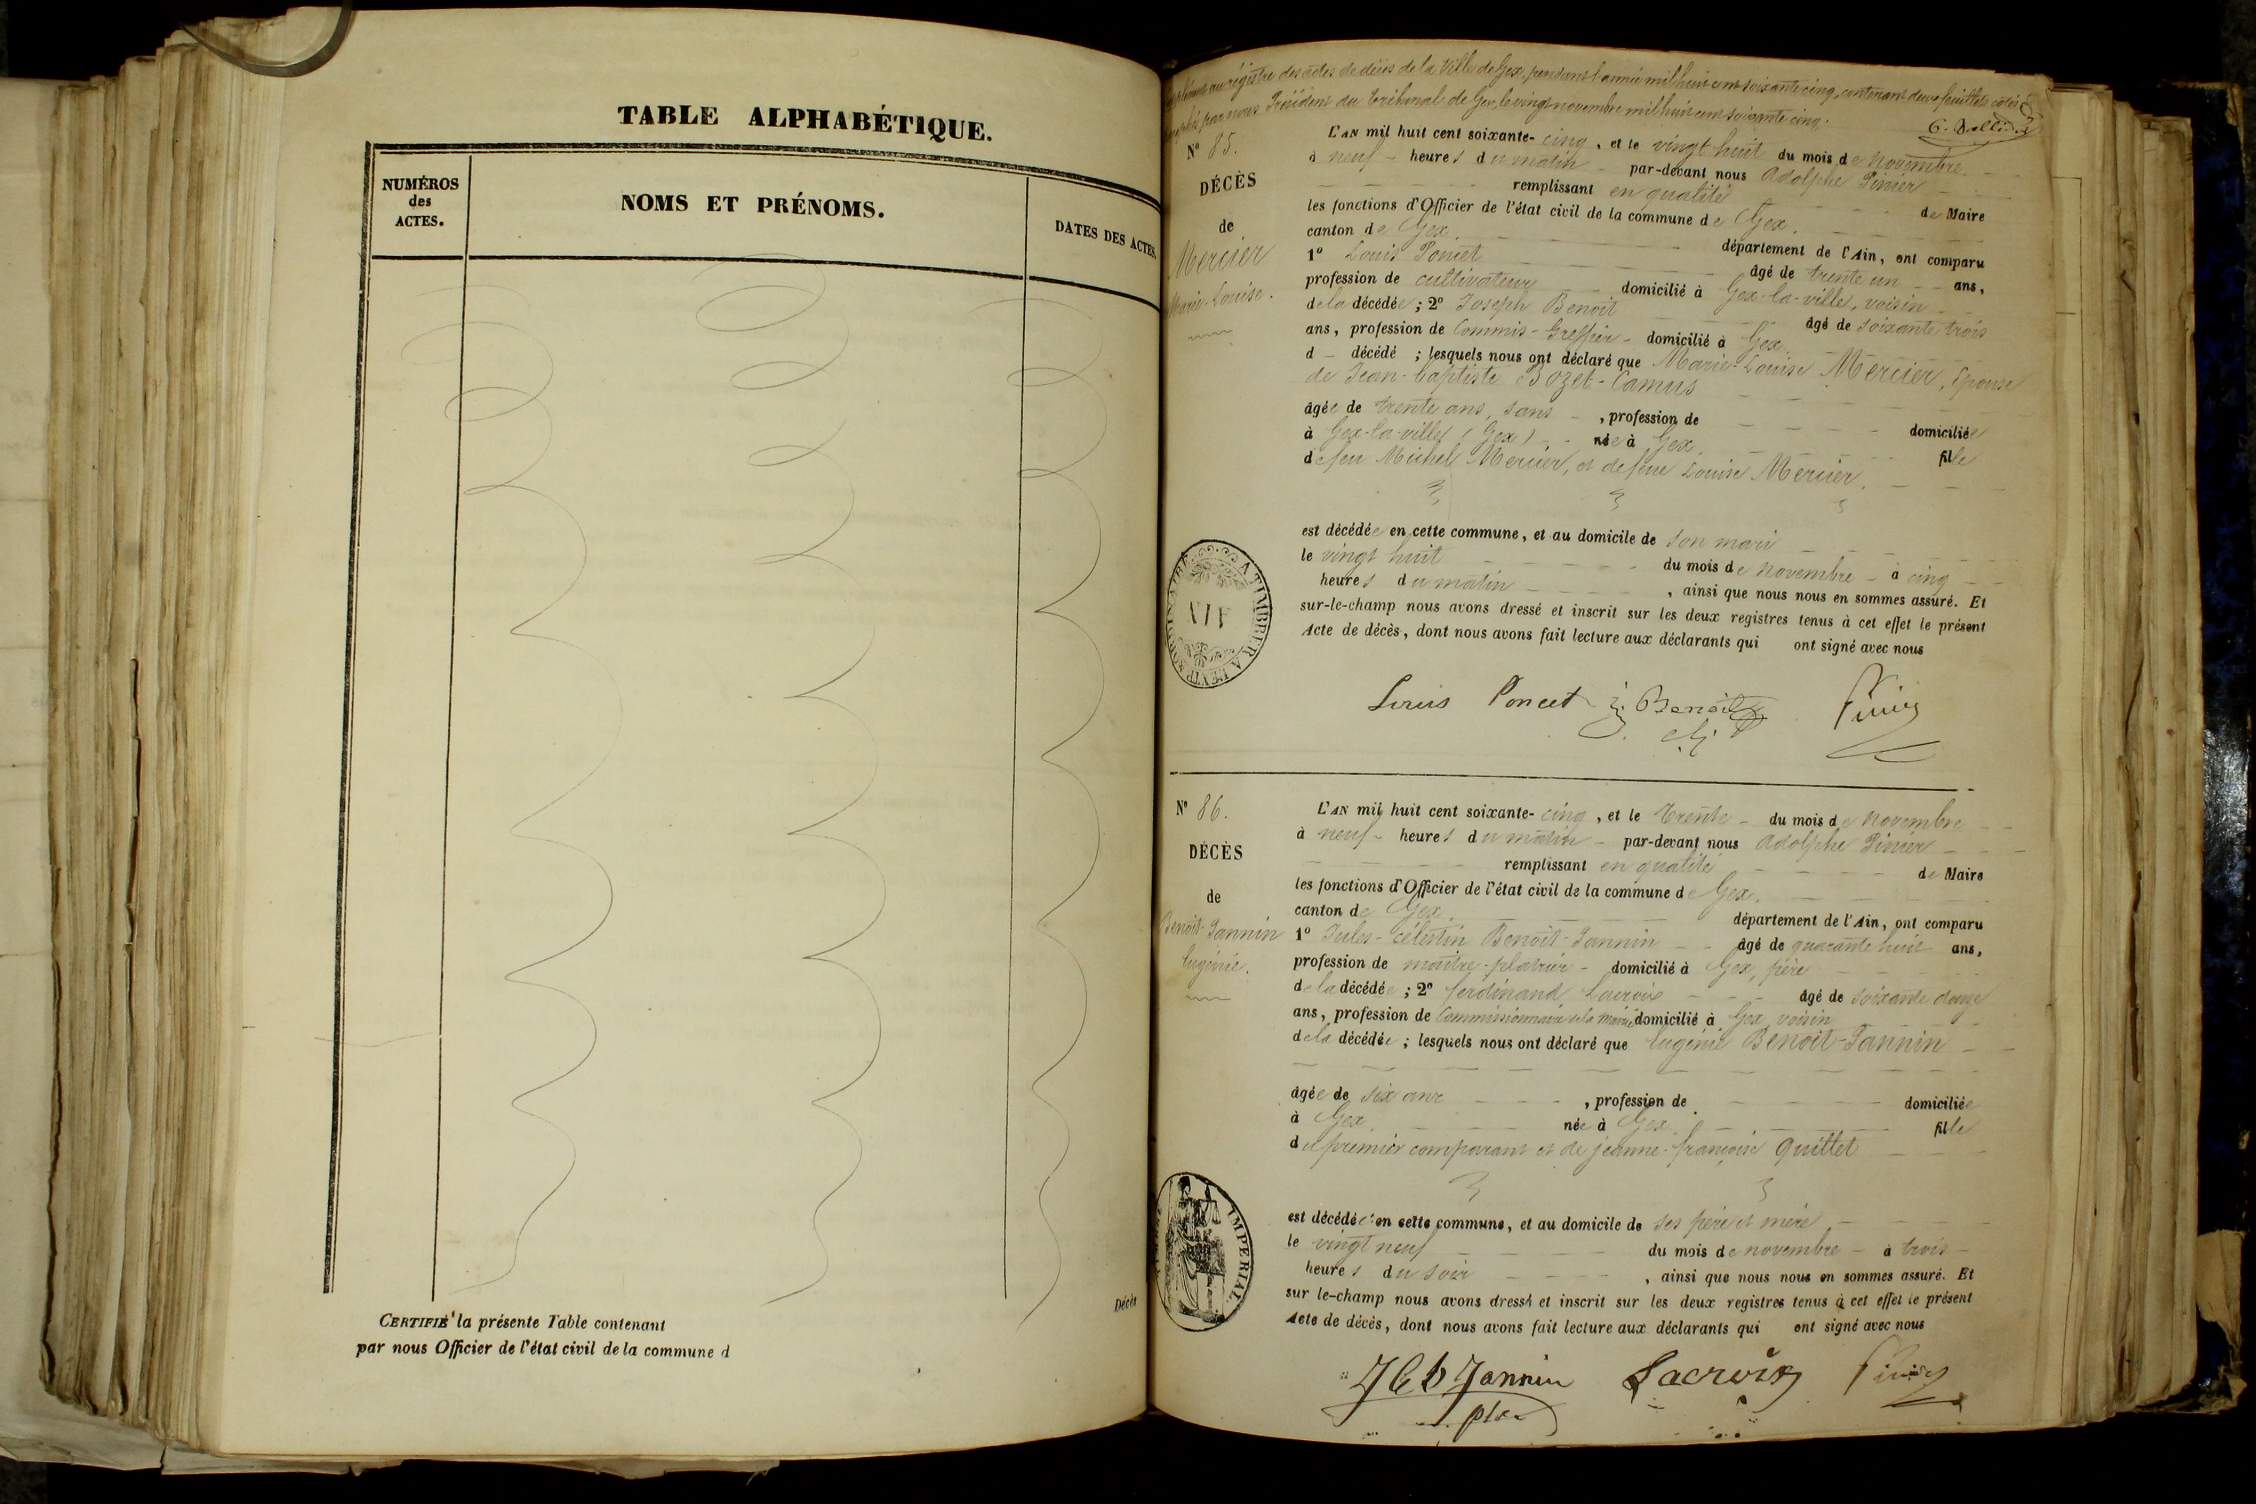 TABLE ALPHABÉTIQUE.
NUMÉROS
des
ACTES.
NOMS ET PRÉNOMS.
DATES DES ACTES.
CERTIFIÉ la présente Table contenant
par nous Officier de l'état civil de la commune d
Décès
au régistre des actes de décès de la Ville de Gex, pendant l'année mil huit cent soixante cinq, contenant deux feuillets cotés
par nous Président du Tribunal de Gex, le vingt novembre mil huit cent soixante cinq.
Nº 85.
DÉCÈS
de
Mercier
Marie-Louise.
L'AN mil huit cent soixante-cinq, et le vingt huit du mois de novembre
à neuf heures du matin par-devant nous Adolphe Pinier
remplissant en qualité de Maire
les fonctions d'Officier de l'état civil de la commune de Gex.
canton de Gex. département de l'Ain, ont comparu
1º Louis Poncet âgé de trente un ans,
profession de cultivateur domicilié à Gex-la-ville, voisin
de la décédée ; 2º Joseph Benoit âgé de soixante trois
ans, profession de Commis-Greffier domicilié à Gex.
d décédé ; lesquels nous ont déclaré que Marie-Louise Mercier, Epouse
de Jean-baptiste Bozet-Camus
âgée de trente ans, sans , profession de domiciliée
à Gex-la-ville (Gex) née à Gex. fille
de feu Michel Mercier, et de feue Louise Mercier.
est décédée en cette commune, et au domicile de son mari
le vingt huit du mois de novembre à cinq
heures du matin , ainsi que nous nous en sommes assuré. Et
sur-le-champ nous avons dressé et inscrit sur les deux registres tenus à cet effet le présent
Acte de décès, dont nous avons fait lecture aux déclarants qui ont signé avec nous
Louis Poncet J. Benoit Pinier
Nº 86.
DÉCÈS
de
Benoit-Jannin
Eugénie.
L'AN mil huit cent soixante-cinq, et le trente du mois de novembre
à neuf heures du matin par-devant nous Adolphe Pinier
remplissant en qualité de Maire
les fonctions d'Officier de l'état civil de la commune de Gex.
canton de Gex département de l'Ain, ont comparu
1º Jules-Célestin Benoit-Jannin âgé de quarante huit ans,
profession de maître-platrier domicilié à Gex, père
de la décédée ; 2º ferdinand Lacroix âgé de soixante douze
ans, profession de Commissionnaire de la Mairie domicilié à Gex, voisin
de la décédée ; lesquels nous ont déclaré que Eugénie Benoit-Jannin
âgée de six ans , profession de domiciliée
à Gex née à Gex fille
du premier comparant et de jeanne-françoise Quittet
est décédée en cette commune, et au domicile de ses père et mère
le vingt neuf du mois de novembre à trois
heures du soir , ainsi que nous nous en sommes assuré. Et
sur le-champ nous avons dressé et inscrit sur les deux registres tenus à cet effet le présent
Acte de décès, dont nous avons fait lecture aux déclarants qui ont signé avec nous
IMPERIAL
Jannin Lacroix Pinier